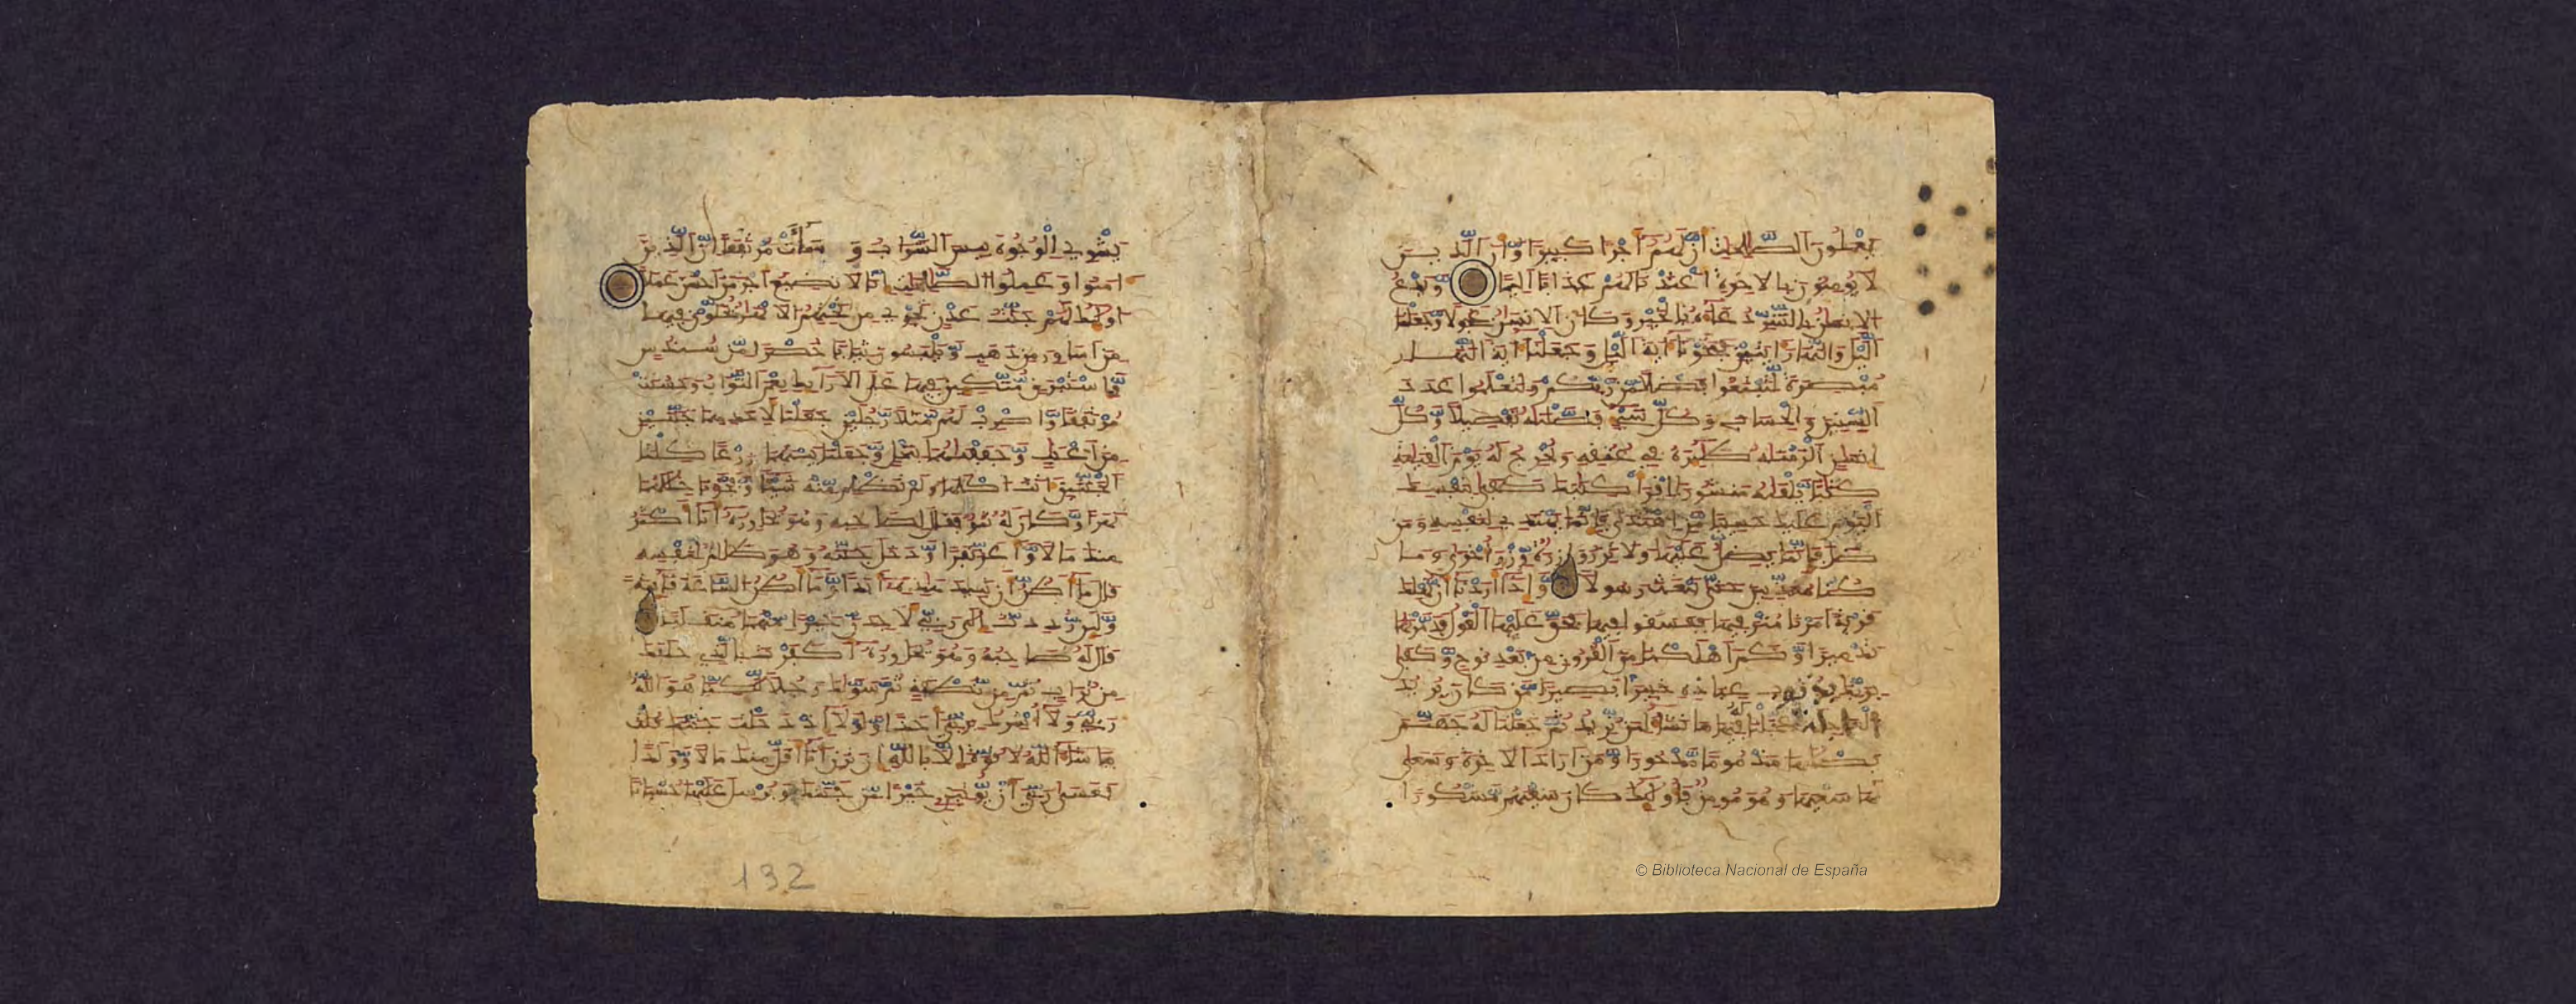 يَعْمَلُونَ الصَّٰلِحَٰتِ أَنَّ لَهُمْ أَجْرًا كَبِيرًا وَأَنَّ الَّذِينَ
لَا يُؤْمِنُونَ بِالْآخِرَةِ أَعْتَدْنَا لَهُمْ عَذَابًا أَلِيمًا وَيَدْعُ
الْإِنسَٰنُ بِالشَّرِّ دُعَآءَهُ بِالْخَيْرِ وَكَانَ الْإِنسَٰنُ عَجُولًا وَجَعَلْنَا
الَّيْلَ وَالنَّهَارَ ءَايَتَيْنِ فَمَحَوْنَآ ءَايَةَ الَّيْلِ وَجَعَلْنَآ ءَايَةَ النَّهَارِ
مُبْصِرَةً لِّتَبْتَغُوا فَضْلًا مِّن رَّبِّكُمْ وَلِتَعْلَمُوا عَدَدَ
السِّنِينَ وَالْحِسَابَ وَكُلَّ شَيْءٍ فَصَّلْنَٰهُ تَفْصِيلًا وَكُلَّ
إِنسَٰنٍ أَلْزَمْنَٰهُ طَٰٓئِرَهُ فِي عُنُقِهِ وَنُخْرِجُ لَهُ يَوْمَ الْقِيَٰمَةِ
كِتَٰبًا يَلْقَىٰهُ مَنشُورًا اقْرَأْ كِتَٰبَكَ كَفَىٰ بِنَفْسِكَ
الْيَوْمَ عَلَيْكَ حَسِيبًا مَّنِ اهْتَدَىٰ فَإِنَّمَا يَهْتَدِي لِنَفْسِهِ وَمَن
ضَلَّ فَإِنَّمَا يَضِلُّ عَلَيْهَا وَلَا تَزِرُ وَازِرَةٌ وِزْرَ أُخْرَىٰ وَمَا
كُنَّا مُعَذِّبِينَ حَتَّىٰ نَبْعَثَ رَسُولًا وَإِذَآ أَرَدْنَآ أَن نُّهْلِكَ
قَرْيَةً أَمَرْنَا مُتْرَفِيهَا فَفَسَقُوا فِيهَا فَحَقَّ عَلَيْهَا الْقَوْلُ فَدَمَّرْنَٰهَا
تَدْمِيرًا وَكَمْ أَهْلَكْنَا مِنَ الْقُرُونِ مِن بَعْدِ نُوحٍ وَكَفَىٰ
بِرَبِّكَ بِذُنُوبِ عِبَادِهِ خَبِيرًا بَصِيرًا مَّن كَانَ يُرِيدُ
الْعَاجِلَةَ عَجَّلْنَا لَهُ فِيهَا مَا نَشَآءُ لِمَن نُّرِيدُ ثُمَّ جَعَلْنَا لَهُ جَهَنَّمَ
يَصْلَىٰهَا مَذْمُومًا مَّدْحُورًا وَمَنْ أَرَادَ الْآخِرَةَ وَسَعَىٰ
لَهَا سَعْيَهَا وَهُوَ مُؤْمِنٌ فَأُولَٰٓئِكَ كَانَ سَعْيُهُم مَّشْكُورًا
يَشْوِي الْوُجُوهَ بِئْسَ الشَّرَابُ وَسَآءَتْ مُرْتَفَقًا إِنَّ الَّذِينَ
ءَامَنُوا وَعَمِلُوا الصَّٰلِحَٰتِ إِنَّا لَا نُضِيعُ أَجْرَ مَنْ أَحْسَنَ عَمَلًا
أُولَٰٓئِكَ لَهُمْ جَنَّٰتُ عَدْنٍ تَجْرِي مِن تَحْتِهِمُ الْأَنْهَٰرُ يُحَلَّوْنَ فِيهَا
مِنْ أَسَاوِرَ مِن ذَهَبٍ وَيَلْبَسُونَ ثِيَابًا خُضْرًا مِّن سُندُسٍ
وَإِسْتَبْرَقٍ مُّتَّكِئِينَ فِيهَا عَلَى الْأَرَآئِكِ نِعْمَ الثَّوَابُ وَحَسُنَتْ
مُرْتَفَقًا وَاضْرِبْ لَهُم مَّثَلًا رَّجُلَيْنِ جَعَلْنَا لِأَحَدِهِمَا جَنَّتَيْنِ
مِنْ أَعْنَٰبٍ وَحَفَفْنَٰهُمَا بِنَخْلٍ وَجَعَلْنَا بَيْنَهُمَا زَرْعًا كِلْتَا
الْجَنَّتَيْنِ ءَاتَتْ أُكُلَهَا وَلَمْ تَظْلِم مِّنْهُ شَيْئًا وَفَجَّرْنَا خِلَٰلَهُمَا
نَهَرًا وَكَانَ لَهُ ثَمَرٌ فَقَالَ لِصَٰحِبِهِ وَهُوَ يُحَاوِرُهُ أَنَا أَكْثَرُ
مِنكَ مَالًا وَأَعَزُّ نَفَرًا وَدَخَلَ جَنَّتَهُ وَهُوَ ظَالِمٌ لِّنَفْسِهِ
قَالَ مَآ أَظُنُّ أَن تَبِيدَ هَٰذِهِ أَبَدًا وَمَآ أَظُنُّ السَّاعَةَ قَآئِمَةً
وَلَئِن رُّدِدتُّ إِلَىٰ رَبِّي لَأَجِدَنَّ خَيْرًا مِّنْهُمَا مُنقَلَبًا
قَالَ لَهُ صَاحِبُهُ وَهُوَ يُحَاوِرُهُ أَكَفَرْتَ بِالَّذِي خَلَقَكَ
مِن تُرَابٍ ثُمَّ مِن نُّطْفَةٍ ثُمَّ سَوَّىٰكَ رَجُلًا لَّٰكِنَّا هُوَ اللَّهُ
رَبِّي وَلَآ أُشْرِكُ بِرَبِّي أَحَدًا وَلَوْلَآ إِذْ دَخَلْتَ جَنَّتَكَ قُلْتَ
مَا شَآءَ اللَّهُ لَا قُوَّةَ إِلَّا بِاللَّهِ إِن تَرَنِ أَنَا أَقَلَّ مِنكَ مَالًا وَوَلَدًا
فَعَسَىٰ رَبِّي أَن يُؤْتِيَنِ خَيْرًا مِّن جَنَّتِكَ وَيُرْسِلَ عَلَيْهَا حُسْبَانًا
132
© Biblioteca Nacional de España